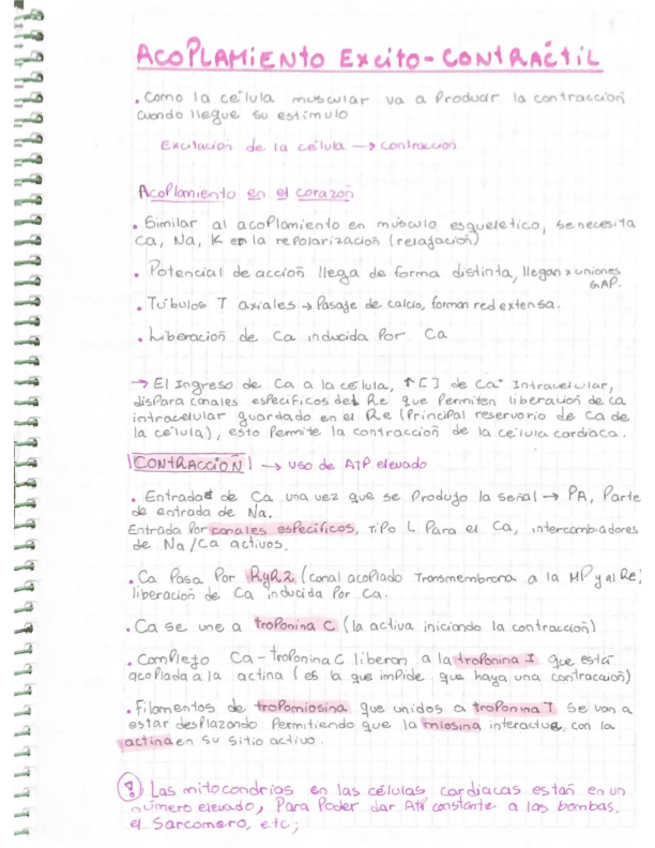 ACOPLAMIENTO EXCITO-CONTRÁCTIL
. Como la célula muscular va a Producir la contracción
cuando llegue su estímulo
Excitación de la célula → contracción
Acoplamiento en el corazón
. Similar al acoplamiento en músculo esquelético, se necesita
Ca, Na, K en la repolarización (relajación)
. Potencial de acción llega de forma distinta, llegan x uniones
GAP.
. Túbulos T axiales → Pasaje de calcio, forman red extensa.
. Liberación de Ca inducida Por Ca
→ El Ingreso de Ca a la célula, ↑[ ] de Ca⁺ Intracelular,
dispara canales específicos del Re que Permiten liberación de ca
intracelular guardado en el Re (Principal reservorio de Ca de
la célula), esto Permite la contracción de la célula cardíaca.
CONTRACCIÓN → uso de ATP elevado
. Entrada de Ca una vez que se Produjo la señal → PA, Parte
de entrada de Na.
Entrada Por canales específicos, Tipo L Para el Ca, intercambiadores
de Na/Ca activos.
. Ca Pasa Por RyR2 (canal acoplado Transmembrana a la MP y al RE)
liberación de Ca inducida Por Ca.
. Ca se une a troponina C (la activa iniciando la contracción)
. Complejo Ca-troponina C liberan a la troponina I que está
acoplada a la actina (es la que impide que haya una contracción)
. Filamentos de tropomiosina que unidos a troponina T se van a
estar desplazando Permitiendo que la miosina interactue, con la
actina en su sitio activo.
! Las mitocondrios en las células cardíacas están en un
número elevado, Para Poder dar ATP constante a las bombas,
el Sarcomero, etc;